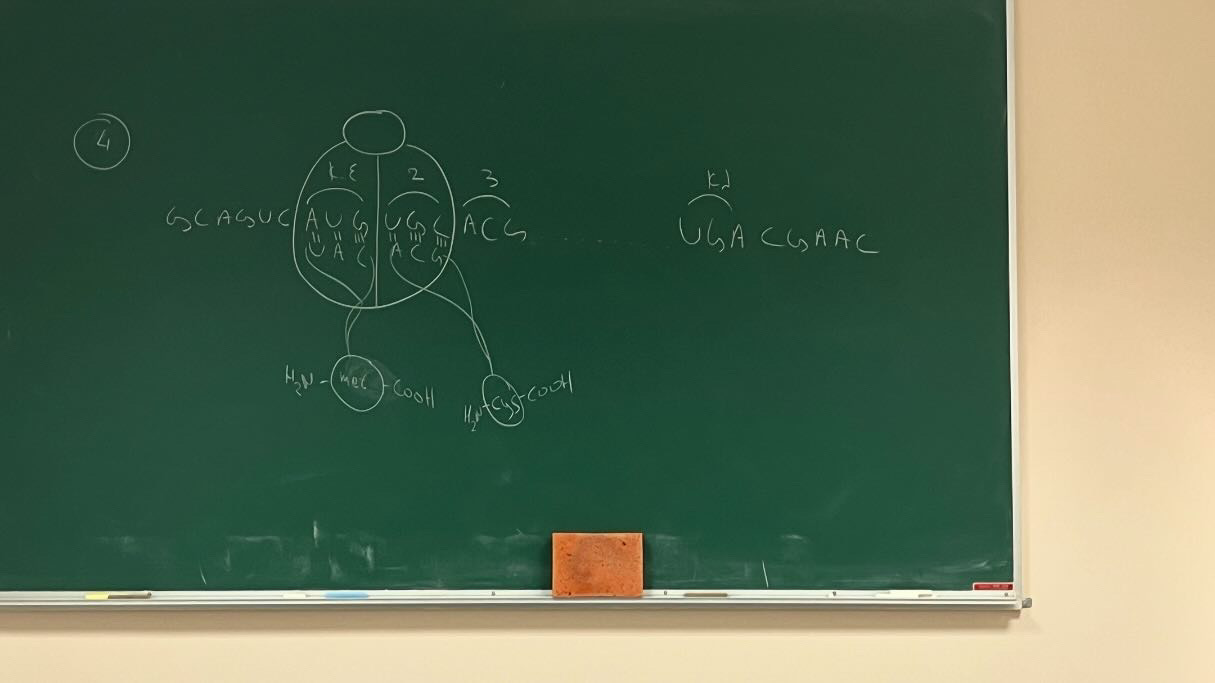 4
K.Z
2
3
KZ
GCAGUC AUG UGC ACG ........ UGA CGAAC
UAC ACG
H₂N-met-COOH
H₂N-Cys-COOH